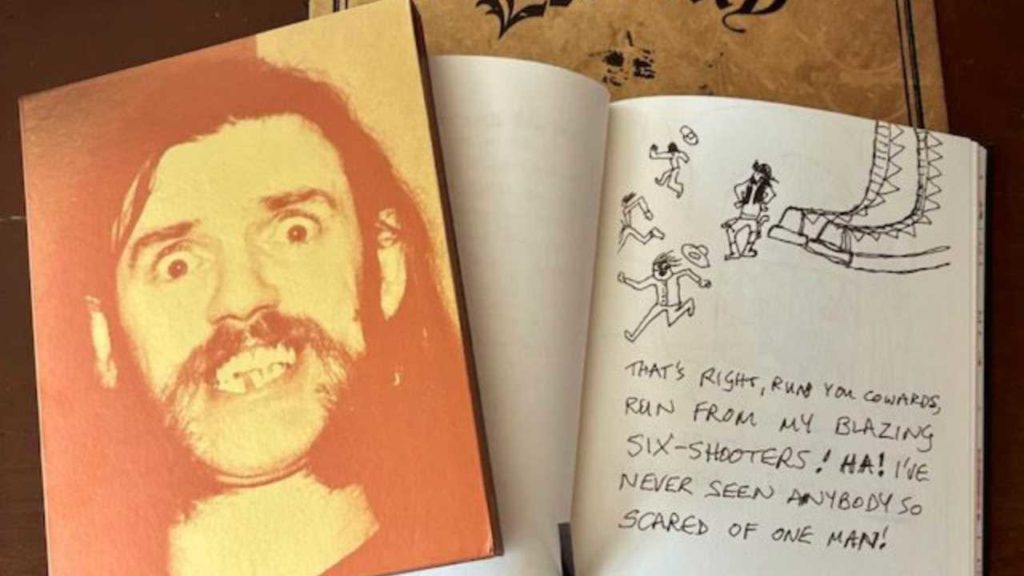 THAT'S RIGHT, RUN YOU COWARDS,
RUN FROM MY BLAZING
SIX-SHOOTERS! HA! I'VE
NEVER SEEN ANYBODY SO
SCARED OF ONE MAN!